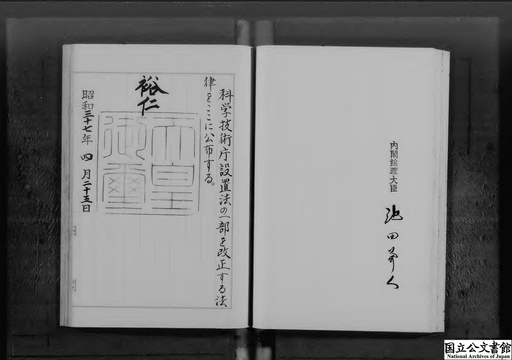 科学技術庁設置法の一部を改正する法
律をここに公布する。
裕仁
天皇
御璽
昭和三十七年 四 月二十五日
内閣総理大臣
池田勇人
国立公文書館
National Archives of Japan